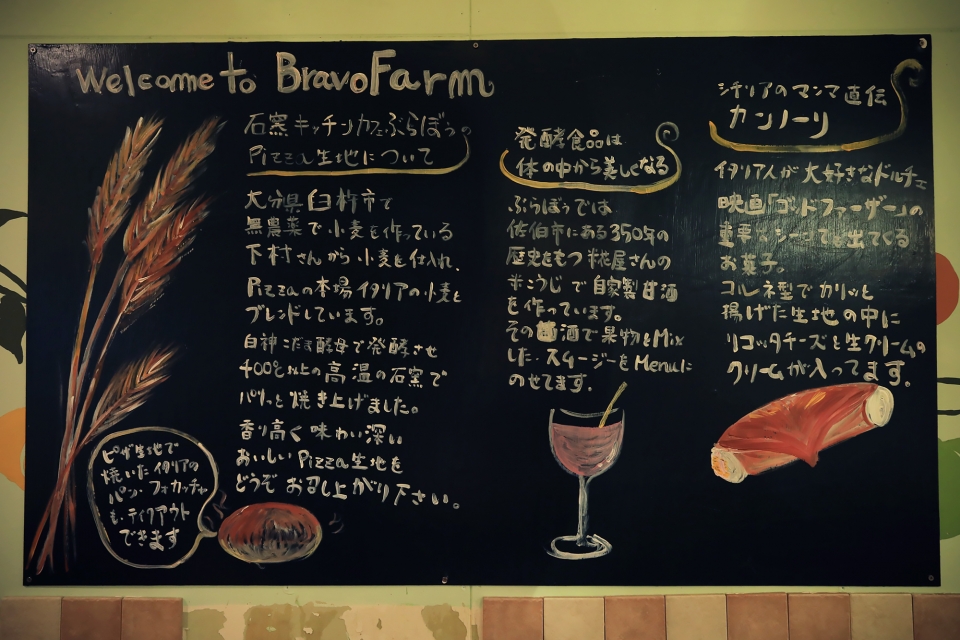 Welcome to BravoFarm
石窯キッチンカフェぶらぼぅ
Pizza生地について
大分県臼杵市で
無農薬で小麦を作っている
下村さんから小麦を仕入れ、
Pizzaの本場イタリアの小麦と
ブレンドしています。
白神こだま酵母で発酵させ
400℃以上の高温の石窯で
パリっと焼き上げました。
香り高く味わい深い
おいしいPizza生地を
どうぞお召し上がり下さい。
ピザ生地で
焼いたイタリアの
パン・フォカッチャ
も・テイクアウト
できます
発酵食品は
体の中から美しくなる
ぶらぼぅでは
佐伯市にある350年の
歴史をもつ糀屋さんの
米こうじで自家製甘酒
を作っています。
その甘酒で果物とMix
した・スムージーをMenuに
のせてます。
シチリアのマンマ直伝
カンノーリ
イタリア人が大好きなドルチェ
映画「ゴッドファーザー」の
重要なシーンでも出てくる
お菓子。
コルネ型でカリッと
揚げた生地の中に
リコッタチーズと生クリームの
クリームが入ってます。